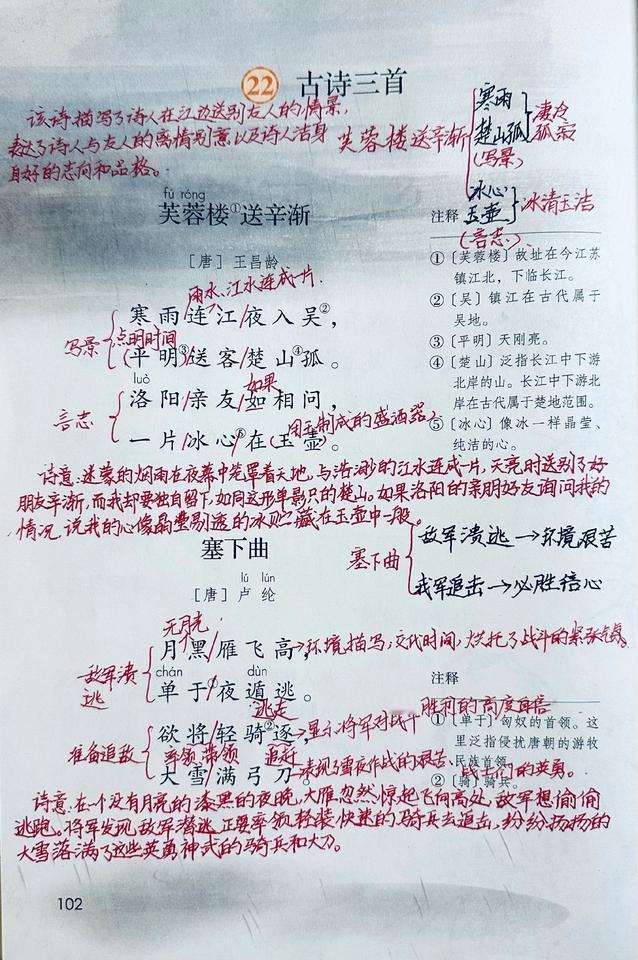 22 古诗三首
该诗描写了诗人在江边送别友人的情景,
表达了诗人与友人的离情别意以及诗人洁身
自好的志向和品格。
芙蓉楼送辛渐
寒雨
楚山孤
(写景)
凄冷
孤寂
冰心
玉壶
(言志)
冰清玉洁
fú róng
芙蓉楼①送辛渐
[唐] 王昌龄
雨水、江水连成一片.
寒雨/连江/夜入吴②,
写景
点明时间
(平明)③/送客/楚山④孤。
luò
如果
洛阳/亲友/如相问,
言志
用玉制成的盛酒器
一片/冰心⑤/在(玉壶)。
注释
①〔芙蓉楼〕故址在今江苏
镇江北,下临长江。
②〔吴〕镇江在古代属于
吴地。
③〔平明〕天刚亮。
④〔楚山〕泛指长江中下游
北岸的山。长江中下游北
岸在古代属于楚地范围。
⑤〔冰心〕像冰一样晶莹、
纯洁的心。
诗意:迷蒙的烟雨在夜幕中笼罩着天地,与浩渺的江水连成一片,天亮时送别了好
朋友辛渐,而我却要独自留下,如同这形单影只的楚山。如果洛阳的亲朋好友询问我的
情况,说我的心像晶莹剔透的冰贮藏在玉壶中一般。
塞下曲
敌军溃逃→环境艰苦
我军追击→必胜信心
塞下曲
lú lún
[唐] 卢纶
无月光
月黑/雁飞高,
→环境描写,交代时间,烘托了战斗的紧张气氛
敌军溃
逃
chán dùn
单于①/夜遁逃。
逃走
欲将/轻骑②逐,
→显示将军对战斗
胜利的高度自信
准备追敌
率领 带领 追赶
大雪/满弓刀。
→表现了雪夜作战的艰苦,战士们的英勇。
注释
①〔单于〕匈奴的首领。这
里泛指侵扰唐朝的游牧
民族首领。
②〔骑〕骑兵。
诗意:在一个没有月亮的漆黑的夜晚,大雁忽然惊起飞向高处,敌军想偷偷
逃跑。将军发现敌军潜逃,正要率领轻装快速的骑兵去追击,纷纷扬扬的
大雪落满了这些英勇神武的骑兵和大刀。
102